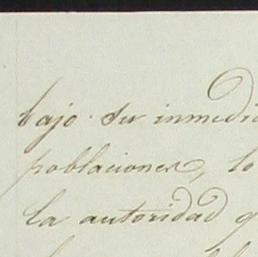 bajo su inmedia
poblaciones, lo
la autoridad q